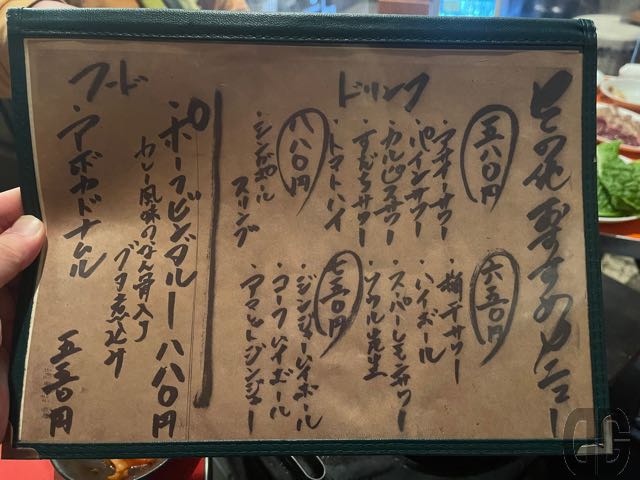 その他 おすすめメニュー
ドリンク
五八〇円
・アサイーサワー
・パインサワー
・カルピスサワー
・すだちサワー
・トマトハイ
六五〇円
・梅干サワー
・ハイボール
・スパーレモンサワー
・ソウル先生
八八〇円
・シンガポール
スリング
七五〇円
・ジンジャーハイボール
・コークハイボール
・アマレットジンジャー
フード
・ポークビンダルー 八八〇円
カレー風味のなん骨入り
ブタ煮込み
・アボカドナムル 五五〇円